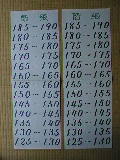 185—190 185—190
180—185 180—185
175—180 175—180
170—175 170—175
165—170 165—170
160—165 160—165
155—160 155—160
150—155 150—155
145—150 145—150
140—145 140—145
135—140 135—140
130—135 130—135
125—130 125—130